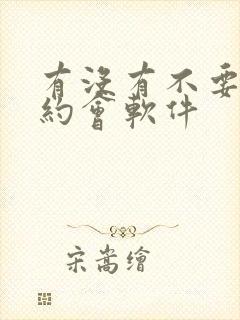 有没有不要
約會軟件
宋嵩繪